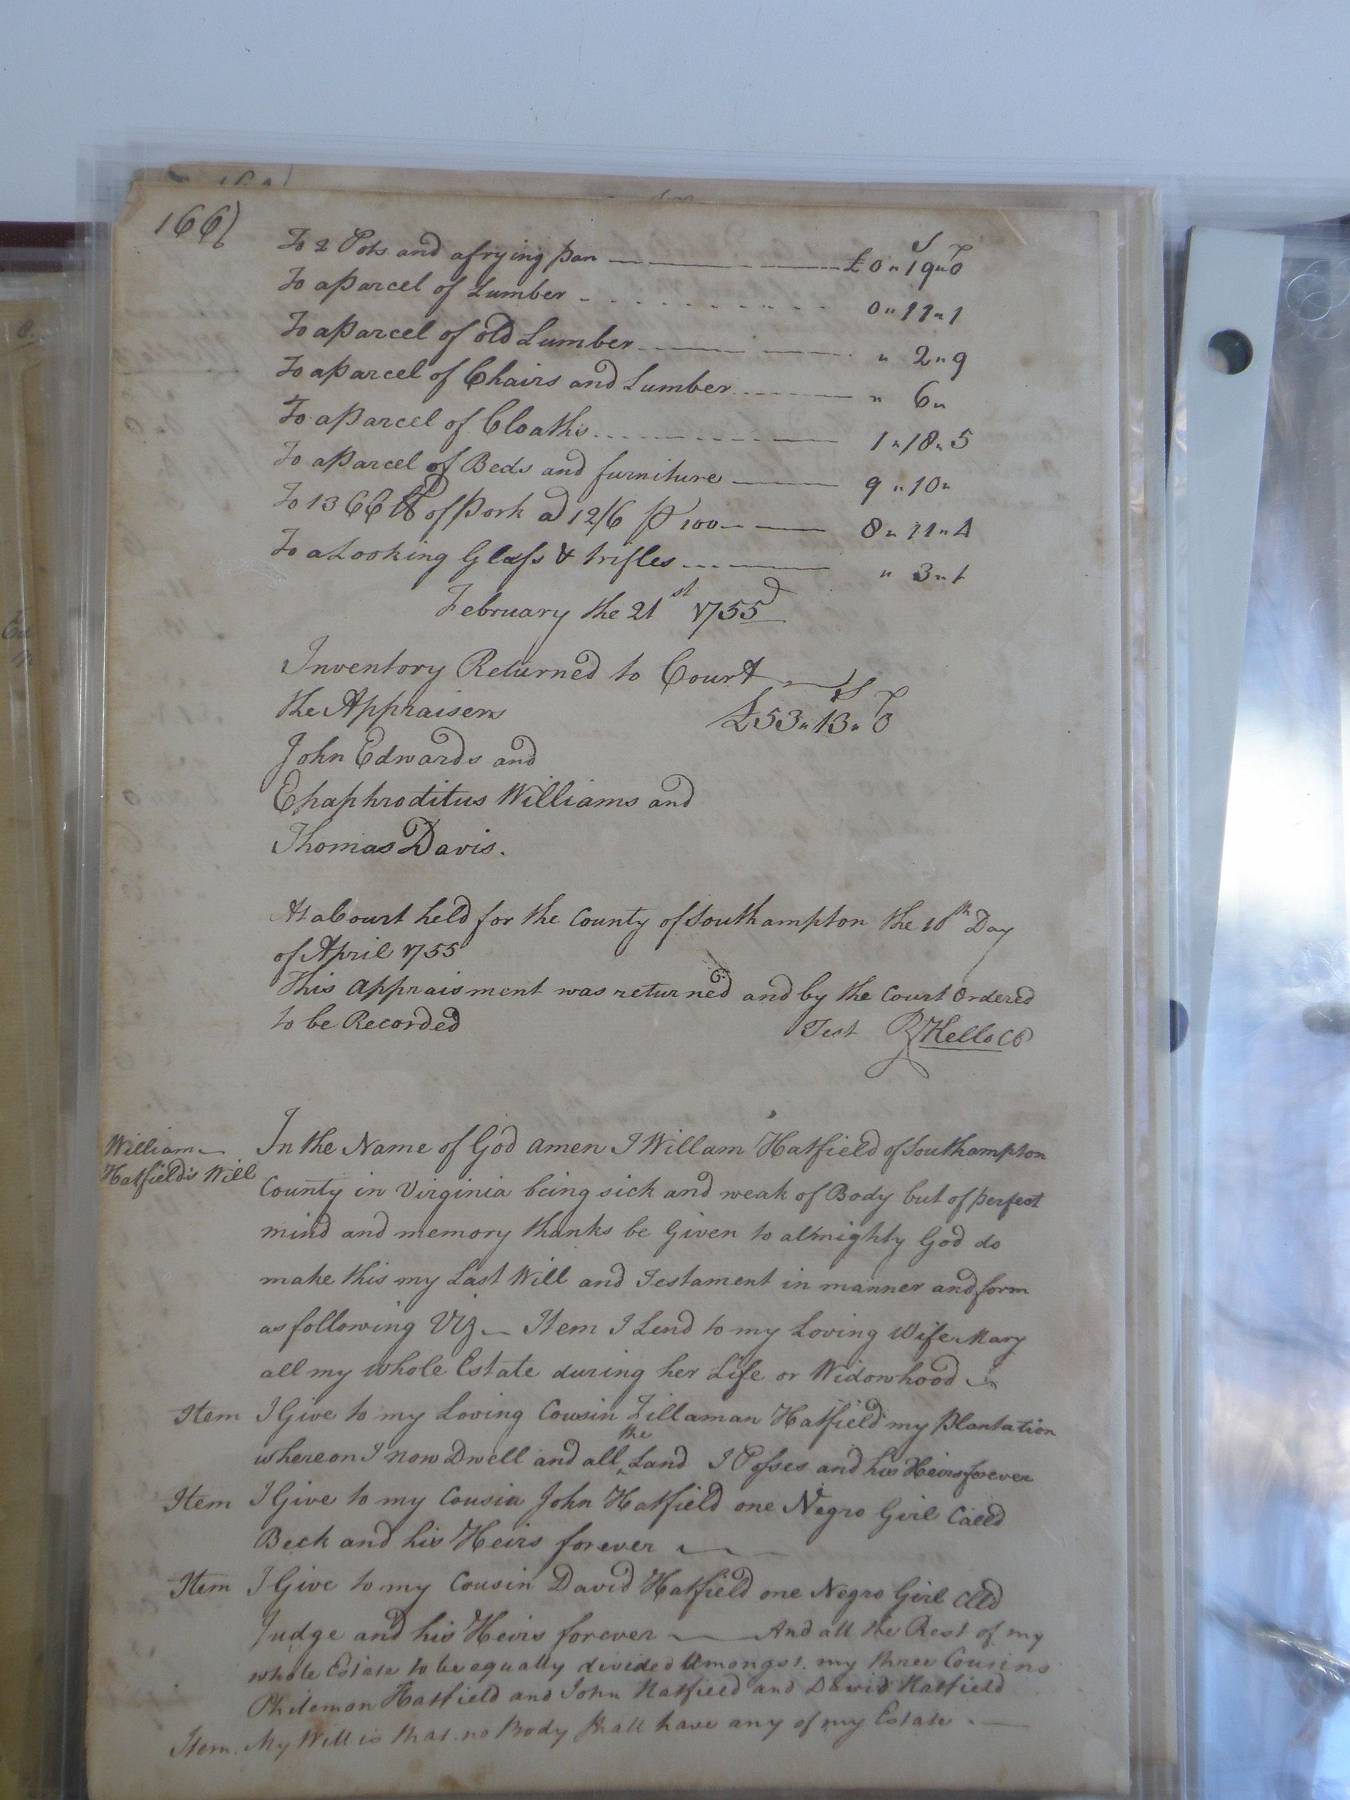 166)
To 2 Pots and a frying pan £0 " 19 " 0
To a Parcel of Lumber 0 " 11 " 1
To a Parcel of old Lumber " 2 " 9
To a Parcel of Chairs and Lumber " 6 "
To a Parcel of Cloaths 1 " 18 " 5
To a Parcel of Beds and furniture 9 " 10 "
To 1366 lb of Pork at 12/6 p 100 8 " 11 " 4
To a Looking Glass & trifles " 3 " 1
February the 21st 1755
Inventory Returned to Court
the Appraisers £53 " 13 " 0
John Edwards and
Ephaphroditus Williams and
Thomas Davis.
At a Court held for the County of Southampton the 10th Day
of April 1755
This Appraisment was returned and by the Court Ordered
to be Recorded Test R Kello CC
William
Hatfield's Will
In the Name of God amen I Willam Hatfield of Southampton
County in Virginia being sick and weak of Body but of perfect
mind and memory thanks be Given to almighty God do
make this my Last Will and Testament in manner and form
as following Viz Item I Lend to my Loving Wife Mary
all my whole Estate during her Life or Widowhood
Item I Give to my Loving Cousin Fillaman Hatfield my Plantation
whereon I now Dwell and all the Land I Posses and his Heirs forever
Item I Give to my Cousin John Hatfield one Negro Girl Calld
Beck and his Heirs forever
Item I Give to my Cousin David Hatfield one Negro Girl Clld
Judge and his Heirs forever And all the Rest of my
whole Estate to be equally divided Amongst my three Cousins
Philemon Hatfield and John Hatfield and David Hatfield
Item My Will is that no Body shall have any of my Estate